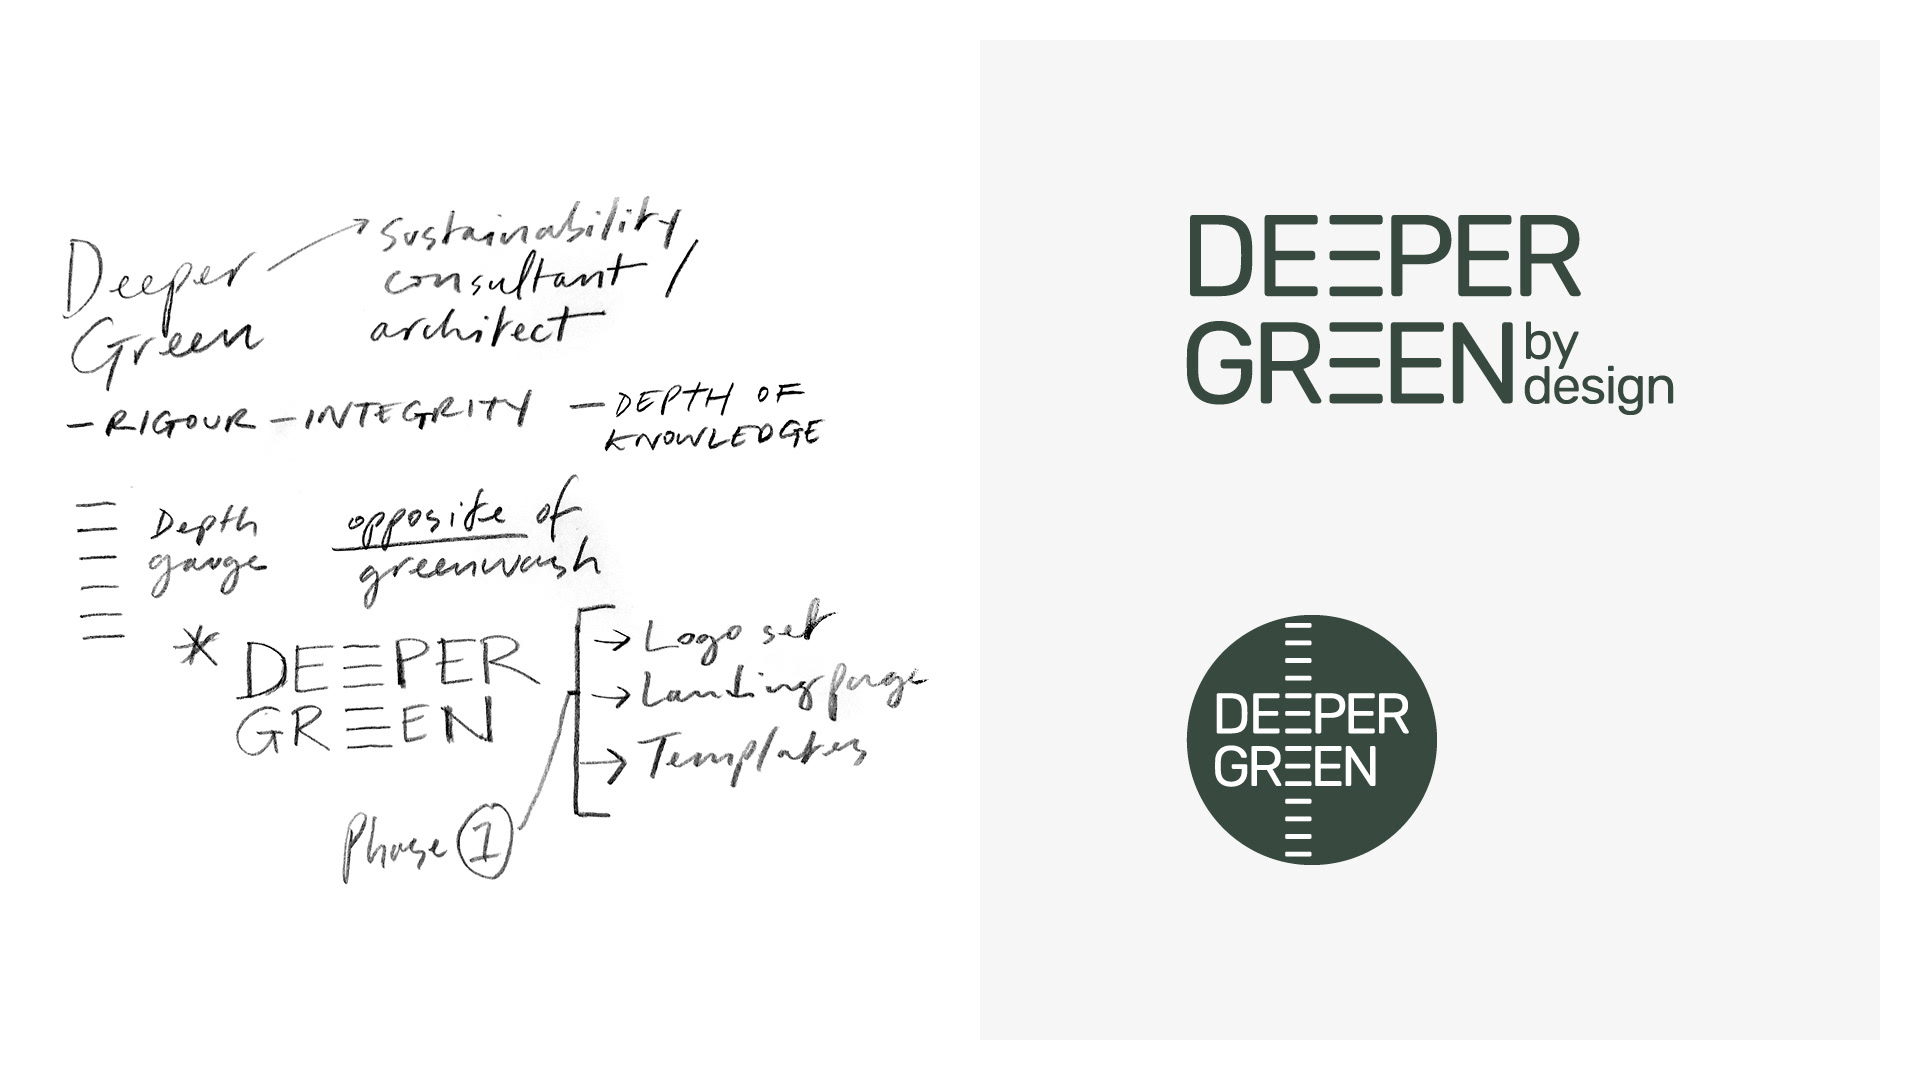 Deeper
Green
sustainability
consultant /
architect
- RIGOUR - INTEGRITY - DEPTH OF
KNOWLEDGE
Depth
gauge
opposite of
greenwash
* DEEPER
GREEN
→ Logo set
→ Landing page
→ Templates
Phase 1
DEEPER
GREEN by
design
DEEPER
GREEN